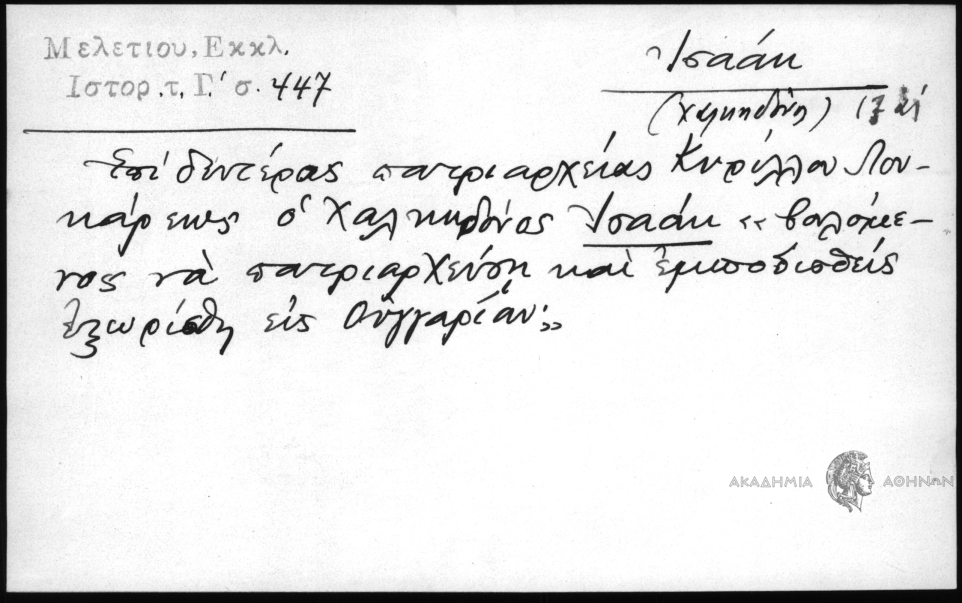 Μελετίου, Εκκλ.
Ιστορ. τ. Γ΄ σ. 447
Ἰσαάκ
(Χαλκηδόνος)
Ἐπί δευτέρας πατριαρχείας Κυρίλλου Λου-
κάρεως ὁ Χαλκηδόνος Ἰσαάκ « βαλόμε-
νος νὰ πατριαρχεύσῃ καὶ ἐμποδισθείς
ἐξωρίσθη εἰς Οὐγγαρίαν.»
ΑΚΑΔΗΜΙΑ ΑΘΗΝΩΝ